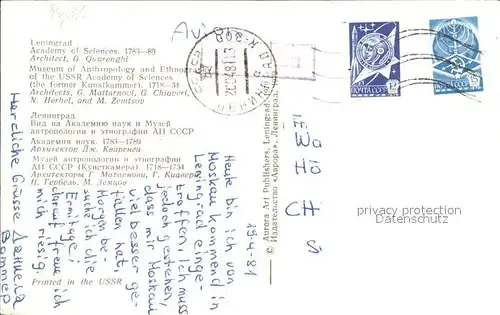 Avia
Leningrad
Academy of Sciences. 1783—89
Architect, G. Quarenghi
Museum of Anthropology and Ethnography
of the USSR Academy of Sciences
(the former Kunstkammer). 1718—34
Architects, G. Mattarnovi, G. Chiaveri,
N. Herbel, and M. Zemtsov
Ленинград
Вид на Академию наук и Музей
антропологии и этнографии АН СССР
Академия наук. 1783—1789
Архитектор Дж. Кваренги
Музей антропологии и этнографии
АН СССР (Кунсткамера). 1718—1734
Архитекторы Г. Маттарнови, Г. Киавери,
Н. Гербель, М. Земцов
Printed in the USSR
© Aurora Art Publishers, Leningrad.
© Издательство «Аврора».
ПОЧТА СССР
12
ПОЧТА СССР
19.4.81
Heute bin ich von
Moskau kommend in
Leningrad einge-
troffen. Ich muss
jedoch gestehen,
dass mir Moskau
viel besser ge-
fallen hat.
Morgen be-
suche ich die
Ermitage;
darauf freue ich
mich riesig.
Herzliche Grüsse
CH
privacy protection
Datenschutz